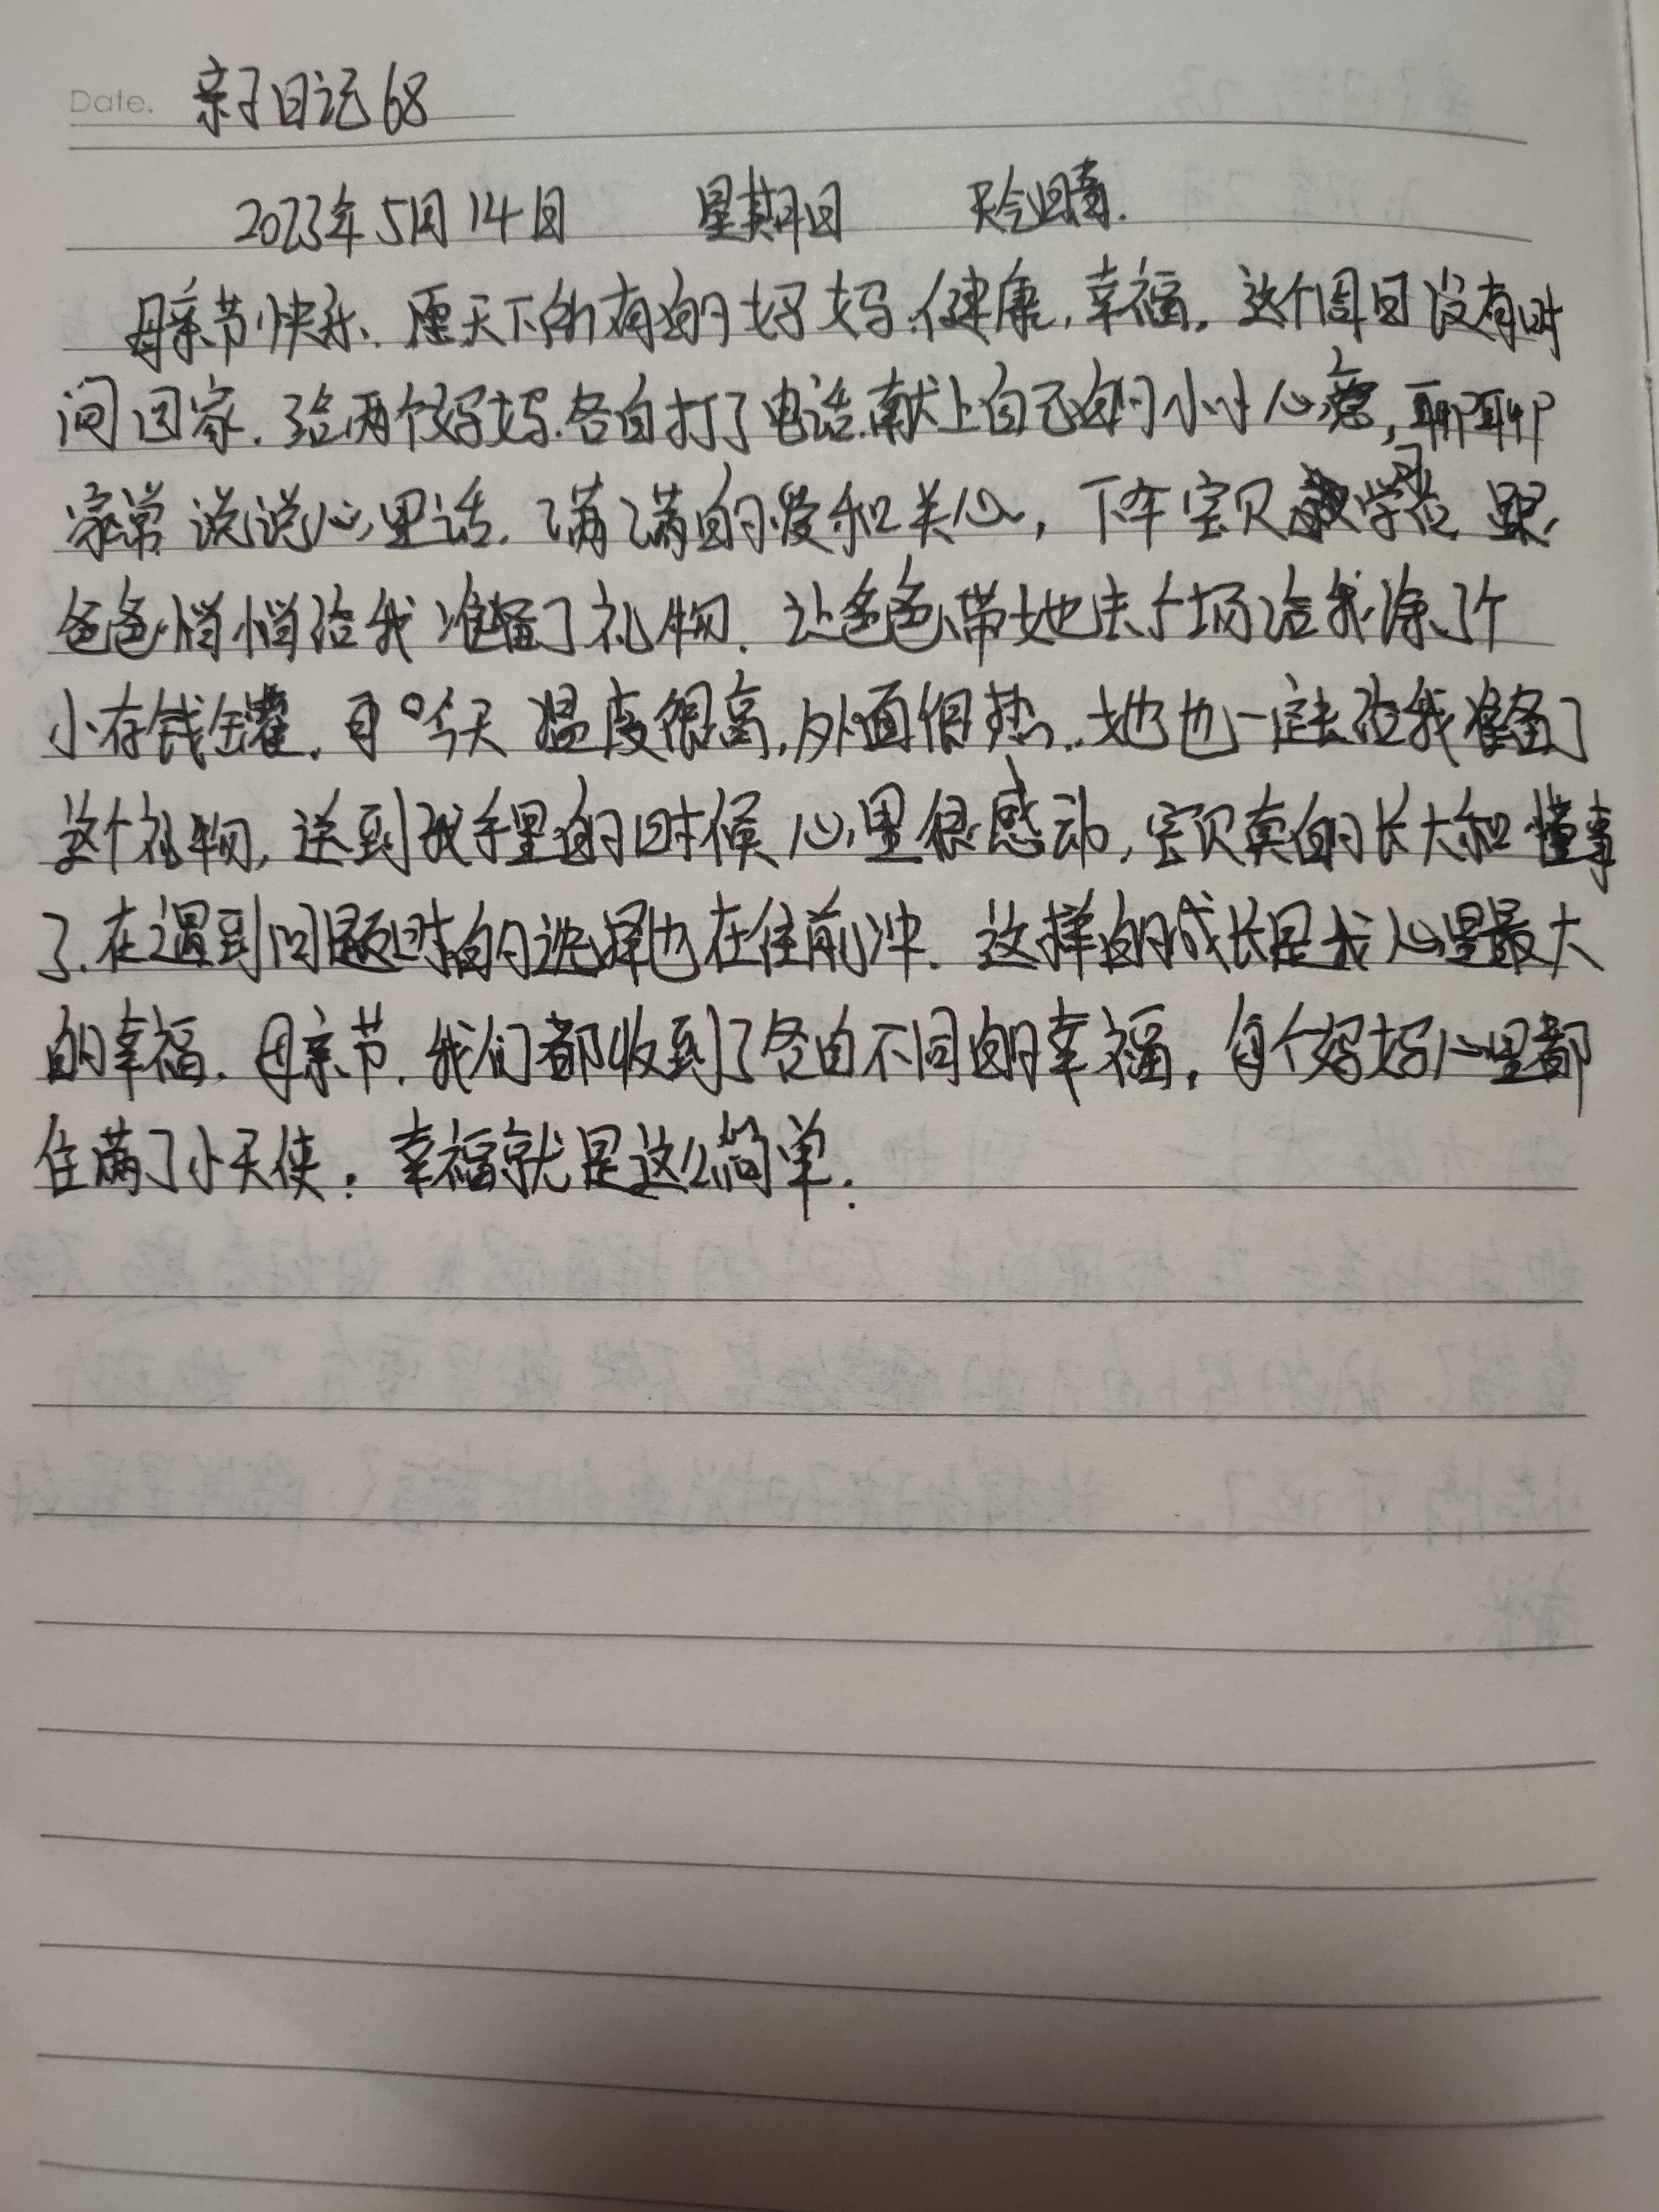 Date. 亲子日记68
2023年5月14日 星期日 天气晴.
母亲节快乐.愿天下所有的妈妈.健康,幸福.这个周日没有时
间回家.给两个妈妈.各自打了电话.献上自己的小小心意,聊聊
家常说说心里话.满满的爱和关心,下午宝贝放学后跟
爸爸悄悄给我准备了礼物.让爸爸带她去广场给我涂了个
小存钱罐.今天温度很高,外面很热..她也一定去给我准备了
这个礼物,送到我手里的时候心里很感动,宝贝真的长大和懂事
了.在遇到问题时的选择也在往前冲.这样的成长是我心里最大
的幸福.母亲节.我们都收到了各自不同的幸福.每个妈妈心里都
住满了小天使.幸福就是这么简单.